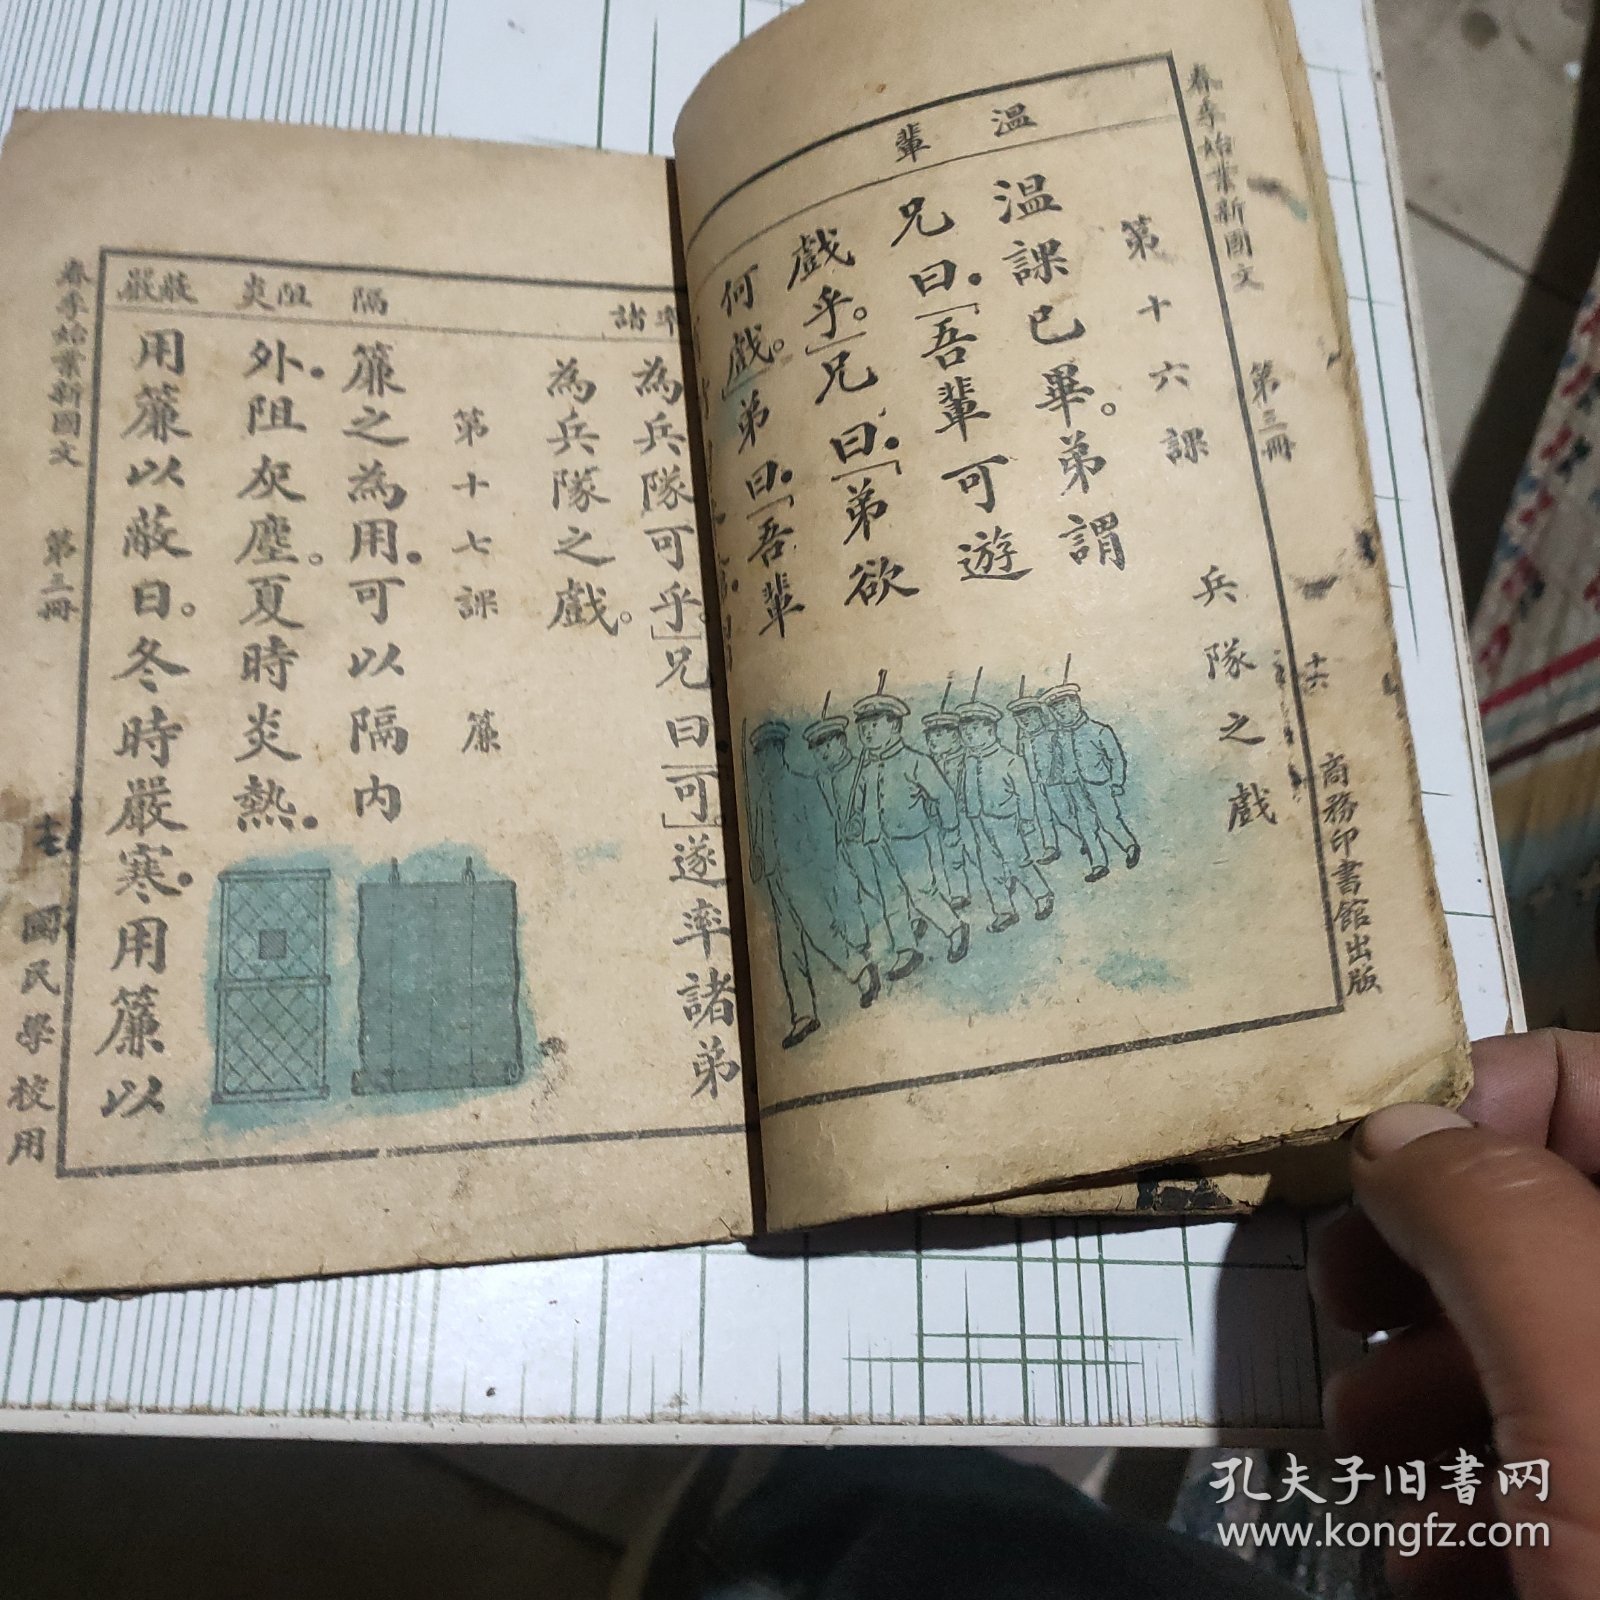 春季始業新國文 第三冊 十六 商務印書館出版
溫 輩
第十六課 兵隊之戲
溫課已畢。弟謂
兄曰。「吾輩可遊
戲乎。」兄曰。「弟欲
何戲。」弟曰。「吾輩
率諸 隔 阻炎 蔽嚴
為兵隊可乎。」兄曰。「可。」遂率諸弟
為兵隊之戲。
第十七課 簾
簾之為用。可以隔內
外。阻灰塵。夏時炎熱。
用簾以蔽日。冬時嚴寒。用簾以
春季始業新國文 第三冊 國民學校用
孔夫子旧书网
www.kongfz.com